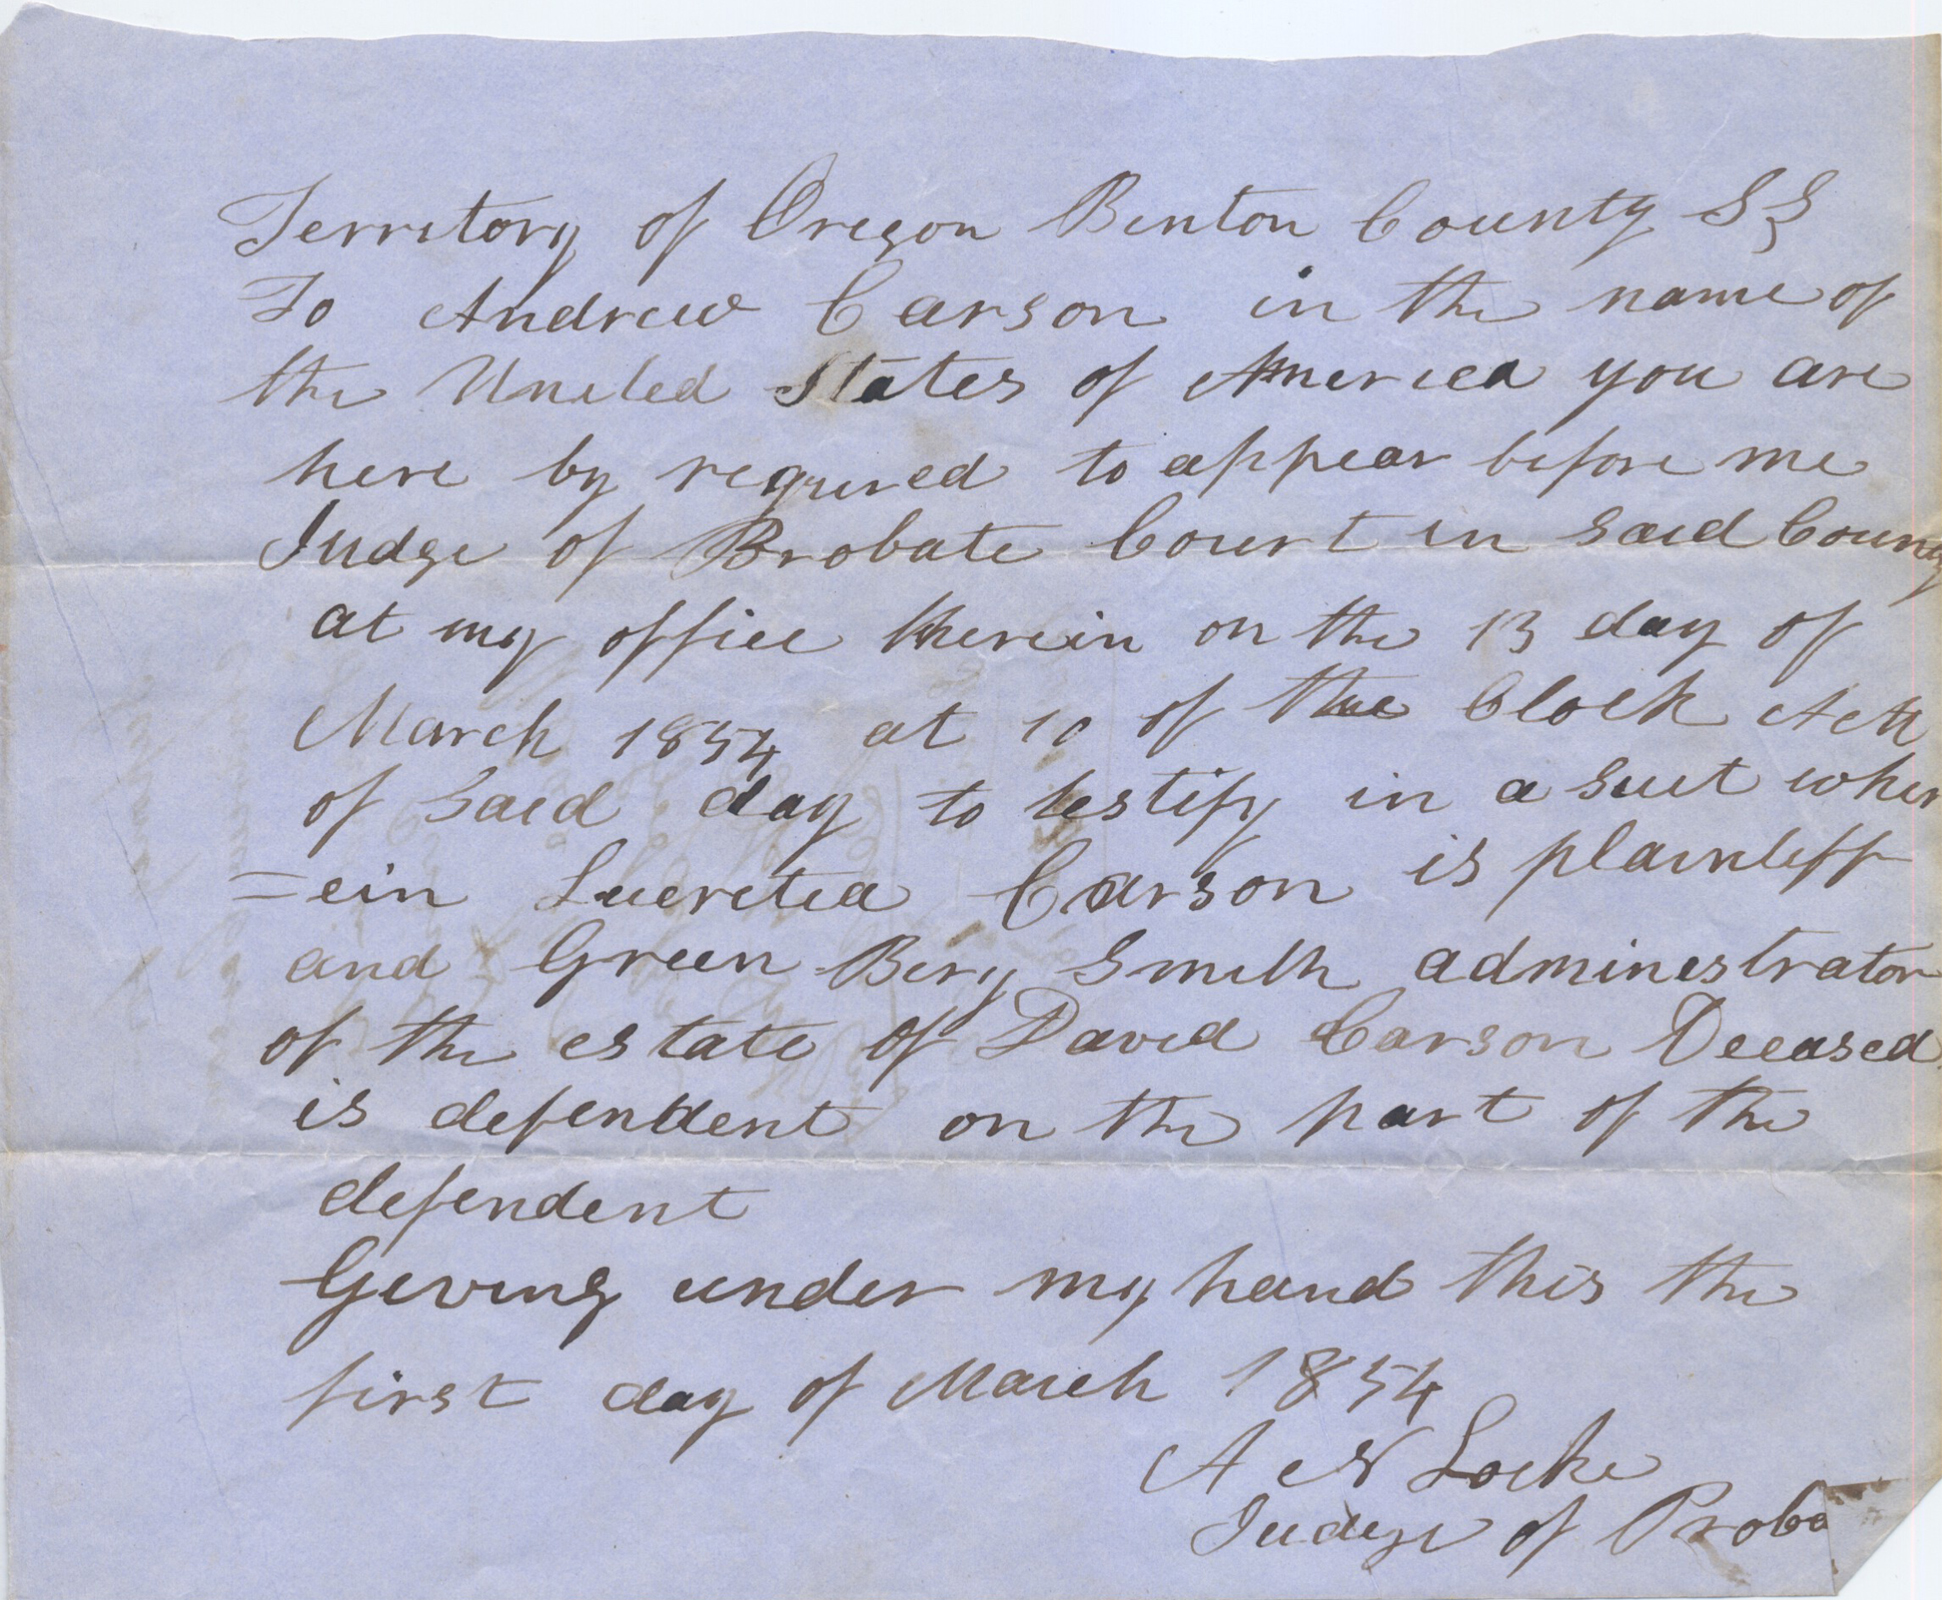 Territory of Oregon Benton County SS
To Andrew Carson in the name of
the United States of America you are
here by requred to appear before me
Judge of Probate Court in said County
at my office therein on the 13 day of
March 1854 at 10 of the Clock AM
of said day to testify in a suit wher
=ein Lucretia Carson is plaintiff
and Green Bery Smith administrator
of the estate of David Carson Deceased
is defendent on the part of the
defendent
Giving under my hand this the
first day of March 1854
A N Locke
Judge of Proba